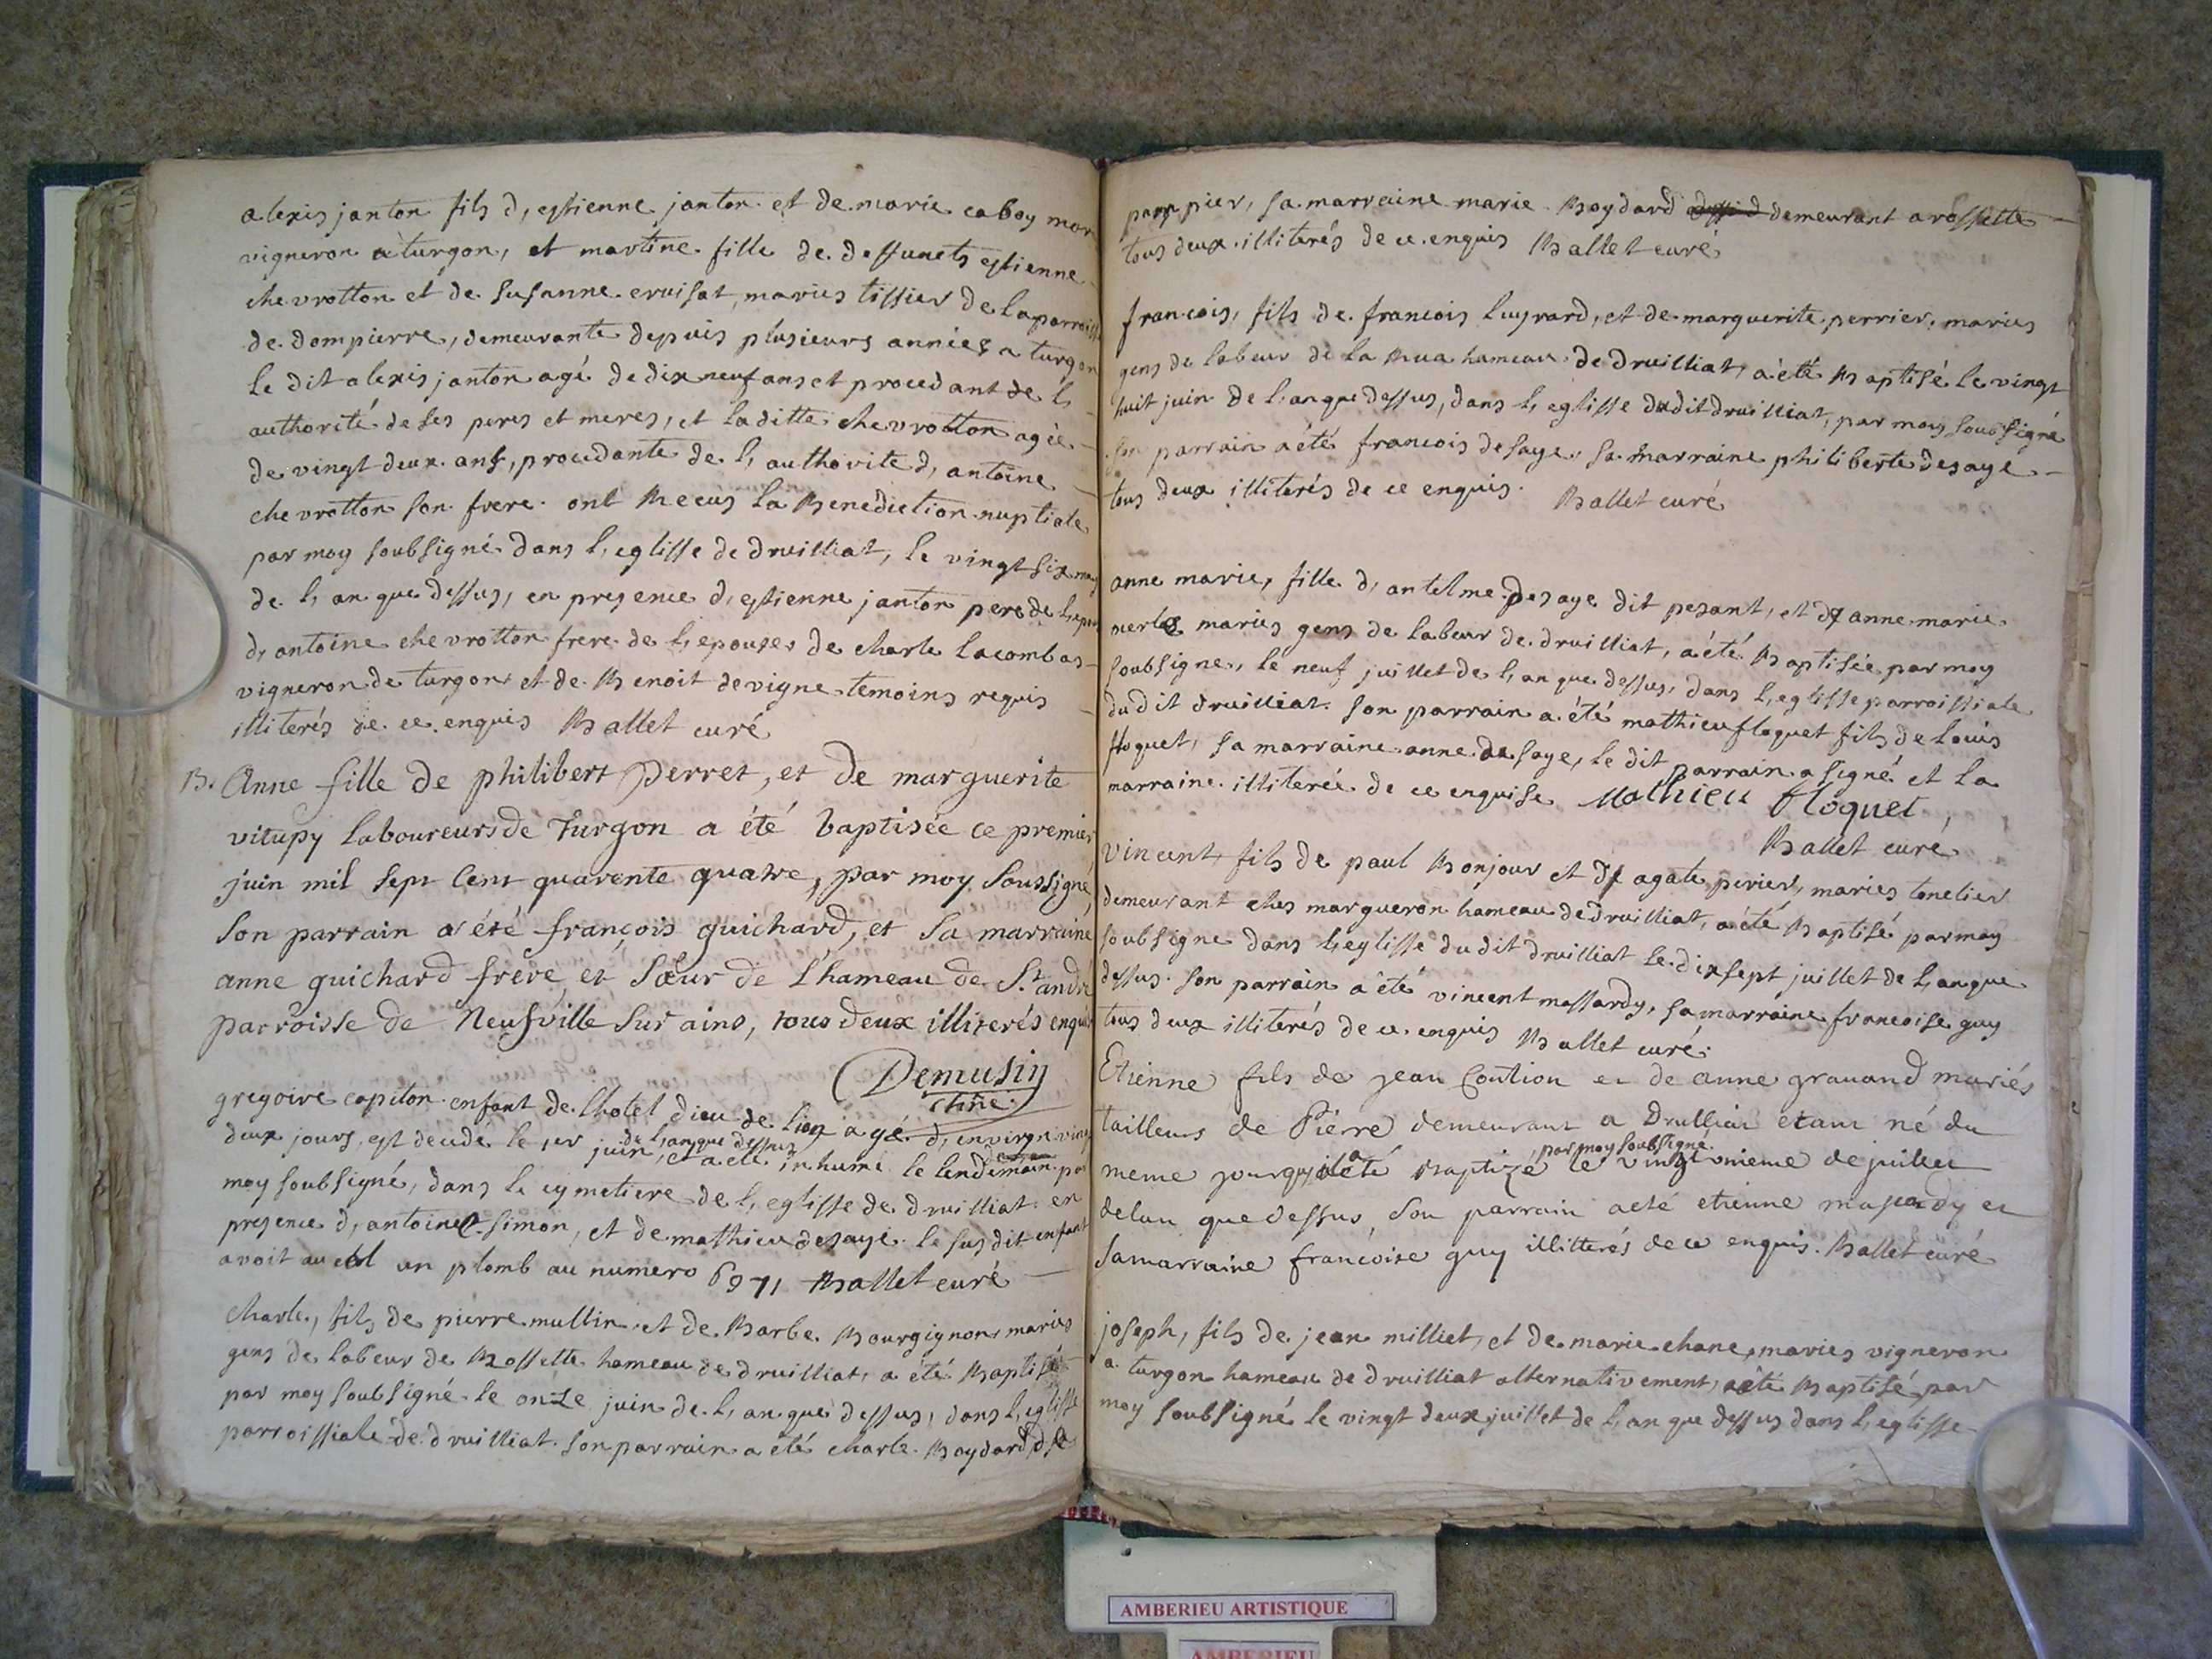 alexis janton fils d, estienne janton et de marie caboy
vigneron a turgon, et martine fille de deffunets estienne
chevrotton et de susanne cruisat, maries tissier de la parroisse
de dompierre, demeurante depuis plusieurs années a turgon
le dit alexis janton agé de dix neuf ans et procedant de l,
authorité de ses peres et meres, et laditte chevrotton agée
de vingt deux ans, procedante de l, authorite d, antoine
chevrotton son frere ont Recus la Benediction nuptiale
par moy soubsigné dans l, eglisse de druilliat, le vingt six may
de l, an que dessus, en presence d, estienne janton pere de l, epoux
d, antoine chevrotton frere de l, epouse, de charle lacombas
vigneron de turgon et de Benoit devigne temoins requis
illiterés de ce enquis Ballet curé
B. Anne fille de philibert Perret, et de marguerite
vitupy laboureurs de Turgon a été baptisée ce premier
juin mil sept cent quarente quatre, par moy soussigné,
son parrain a été françois guichard, et sa marraine
anne guichard frere et sœur de l'hameau de St. andré
parroisse de Neufville sur ains, tous deux illiterés enquis
Demusin
gregoire capiton enfant de l'hotel dieu de lion agé d, environ vingt
deux jours, est decedé le 1er juin de l, an que dessus, et a eté inhumé le lendemain par
moy soubsigné, dans le cymetiere de l, eglisse de druilliat en
presence d, antoine simon, et de mathieu desaye. le susdit enfant
avoit au col un plomb au numero 6971 Ballet curé
charle, fils de pierre mullin et de Barbe Bourgignon, maries
gens de labeur de Rossette hameau de druilliat, a été Baptisé
par moy soubsigné le onze juin de l, an que dessus, dans l, eglisse
parroissiale de druilliat. son parrain a été charle Boydard de
pamppier, sa marraine marie Boydard demeurant a rossette
tous deux illiterés de ce enquis Ballet curé
francois, fils de francois luyrard, et de marguerite perrier, maries
gens de labeur de la Rua hameau de druilliat, a été Baptisé le vingt
huit juin de l, an que dessus, dans l, eglisse dudit druilliat, par moy soubsigné
son parrain a été francois desaye, sa marraine philiberte desaye
tous deux illiterés de ce enquis. Ballet curé
anne marie, fille d, antelme Desaye dit pesant, et d, anne marie
merle maries gens de labeur de druilliat, a été Baptisée par moy
soubsigne, le neuf juillet de l, an que dessus, dans l, eglisse parroissiale
dudit druilliat. son parrain a été mathieu floquet fils de louis
floquet, sa marraine anne desaye, le dit parrain a signé et la
marraine illiterée de ce enquise Mathieu floquet,
Ballet curé
vincent, fils de paul Bonjour et d, agate perier, maries tonelier
demeurant ches margueron hameau de druilliat, a été Baptisé par moy
soubsigne dans l, eglisse du dit druilliat le dix sept juillet de l, an que
dessus. son parrain a été vincent massardy, sa marraine francoise guy
tous deux illiterés de ce enquis Ballet curé.
Etienne fils de jean Coution et de anne gravand mariés
tailleurs de Pierre demeurant a Drulliat étant né du
meme jour qu'il a été Baptizé, par moy soubsigné. le vingt onieme de juillet
delan que dessus, son parrain aeté etienne masardy et
samarraine francoise guy illitterés de ce enquis. Ballet curé
joseph, fils de jean milliet, et de marie chane, maries vigneron
a turgon hameau de druilliat alternativement, a été Baptisé par
moy soubsigné le vingt deux juillet de l, an que dessus dans l, eglisse
AMBERIEU ARTISTIQUE
AMBERIEU